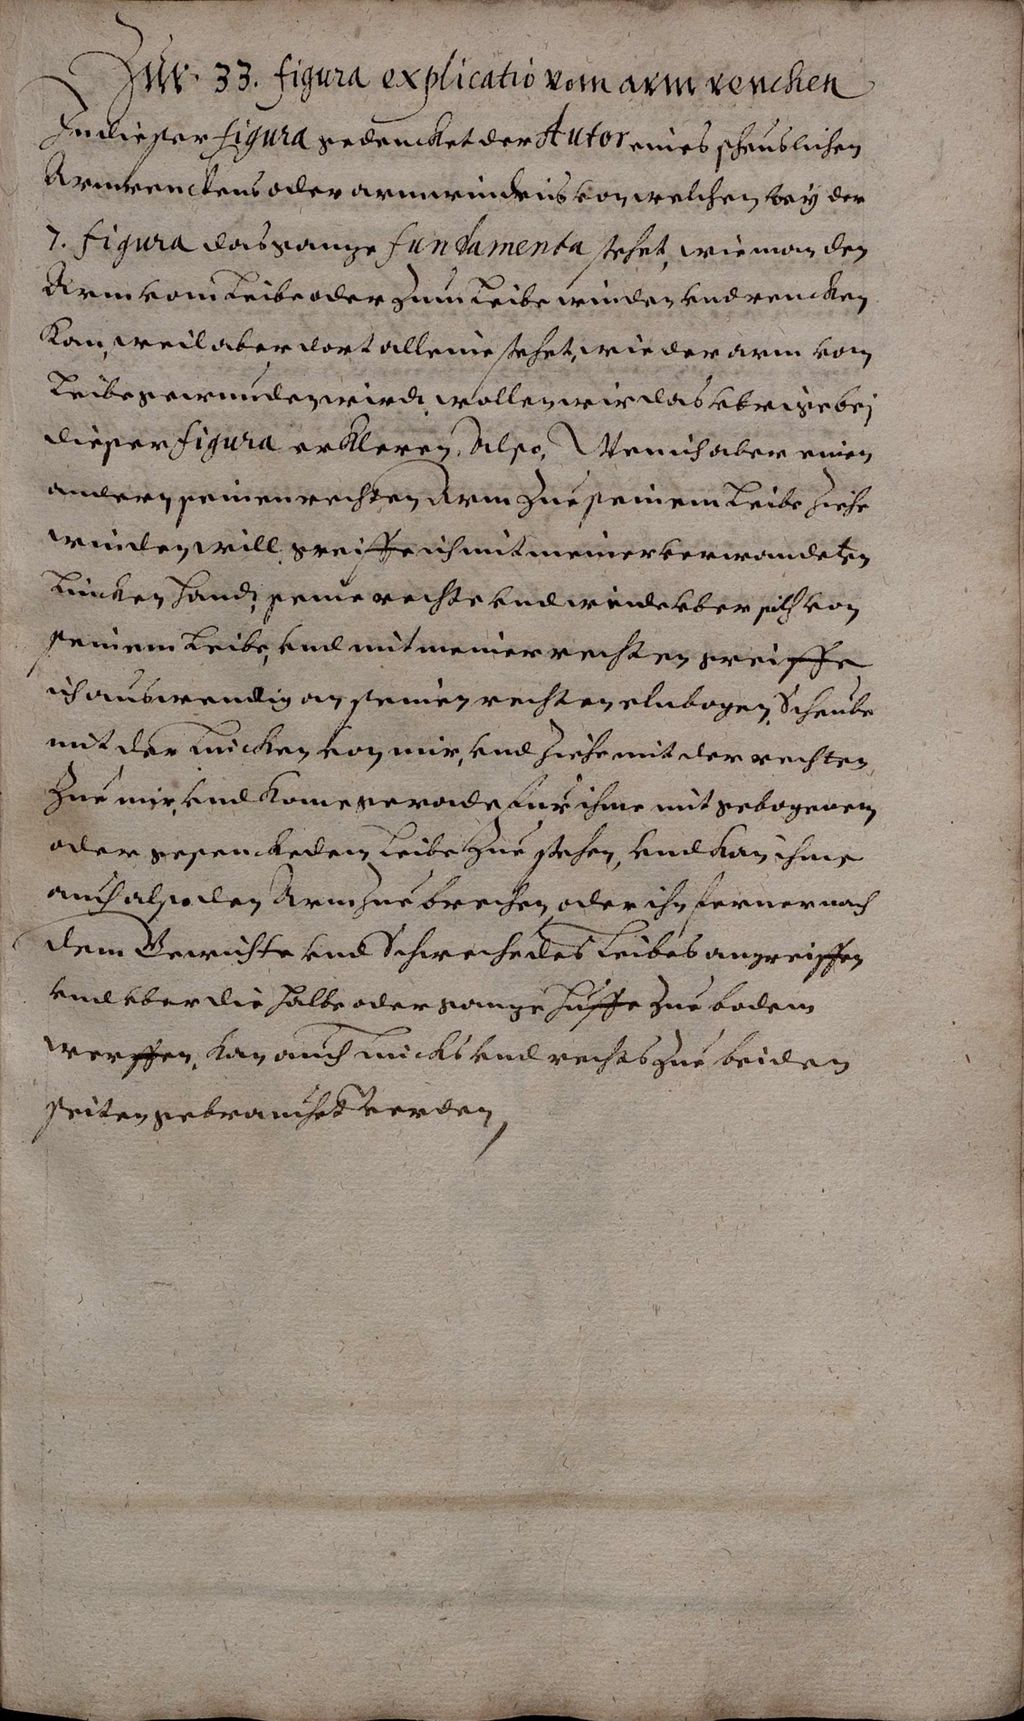 Zur 33. figura explicatio vom arm rencken
In dieser figura gedencket der Autor eines scheuslichen
Armrenckens oder armwindens von welchen bey der
7. figura das gantze fundamenta stehet, wie man den
Arm vom Leibe oder zum Leibe winden vnd rencken
Kan, weil aber dort alleine stehet, wie der arm vom
Leibe gewunden wird, wollen wir das vbrige bej
dieser figura erkleren. Also, Wen ich aber einen
andern seinen rechten Arm zue seinem Leibe ziehe
winden will, greiffe ich mit meiner verwandeten
Lincken Hand, seine rechte vnd winde vber sich von
seinem Leibe, vnd mit meiner rechten greiffe
ich auswendig an seinen rechten elnbogen, Scheube
mit der Lincken von mir, vnd ziehe mit der rechten
Zue mir, vnd Kome gerade fur ihme mit gebogenem
oder gesenckedem Leibe zue stehen, vnd kan ihme
auch also den Arm zue brechen, oder ihn ferner nach
dem Gewichte vnd Schweche des Leibes angreiffen
vnd vber die halbe oder gantze Huffe zue bodem
werffen, kan auch Lincks vnd rechts zue beiden
seiten gebrauchet werden,